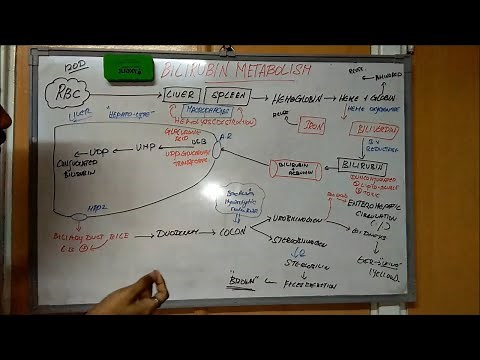 120D
BILIRUBIN METABOLISM
RBC
LIVER
SPLEEN
HEMOGLOBIN
HEME + GLOBIN
REUSE
MACROPHAGES
IRON
HEME OXYGENASE
BILIVERDIN
BILIRUBIN
UNCONJUGATED
① LIPID-SOLUBLE
② TOXIC
BILIRUBIN
ALBUMIN
LIVER
"HEPATOCYTE"
GLUCURONIC
ACID
UGB
UDP GLUCURONYL
TRANSFERASE
UMP
UDP
CONJUGATED
BILIRUBIN
MRP2
BILIARY DUCT
BILE
DUODENUM
COLON
BACTERIA
UROBILINOGEN
STERCOBILINOGEN
STERCOBILIN
FECES
"BROWN"
ENTEROHEPATIC
CIRCULATION
KIDNEYS
YELLOW